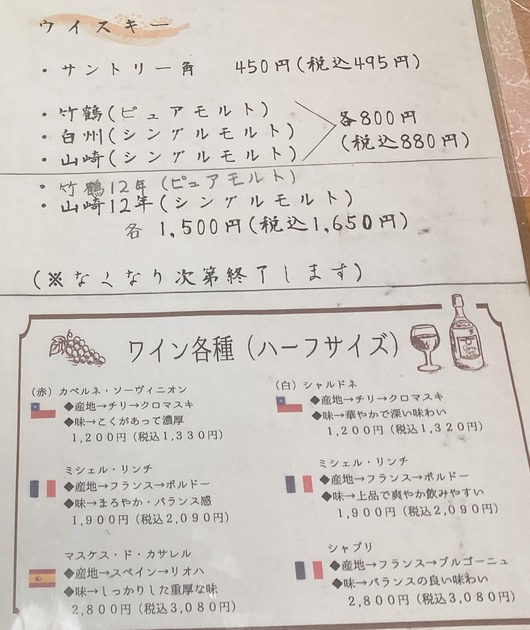 ウイスキー
・サントリー角 450円(税込495円)
・竹鶴(ピュアモルト)
・白州(シングルモルト)
・山崎(シングルモルト)
各800円
(税込880円)
・竹鶴12年(ピュアモルト)
・山崎12年(シングルモルト)
各 1,500円(税込1,650円)
(※なくなり次第終了します)
ワイン各種(ハーフサイズ)
(赤)カベルネ・ソーヴィニオン
◆産地→チリ→クロマスキ
◆味→こくがあって濃厚
1,200円(税込1,330円)
ミシェル・リンチ
◆産地→フランス→ボルドー
◆味→まろやか・バランス感
1,900円(税込2,090円)
マスケス・ド・カサレル
◆産地→スペイン→リオハ
◆味→しっかりした重厚な味
2,800円(税込3,080円)
(白)シャルドネ
◆産地→チリ→クロマスキ
◆味→華やかで深い味わい
1,200円(税込1,320円)
ミシェル・リンチ
◆産地→フランス→ボルドー
◆味→上品で爽やか飲みやすい
1,900円(税込2,090円)
シャブリ
◆産地→フランス→ブルゴーニュ
◆味→バランスの良い味わい
2,800円(税込3,080円)